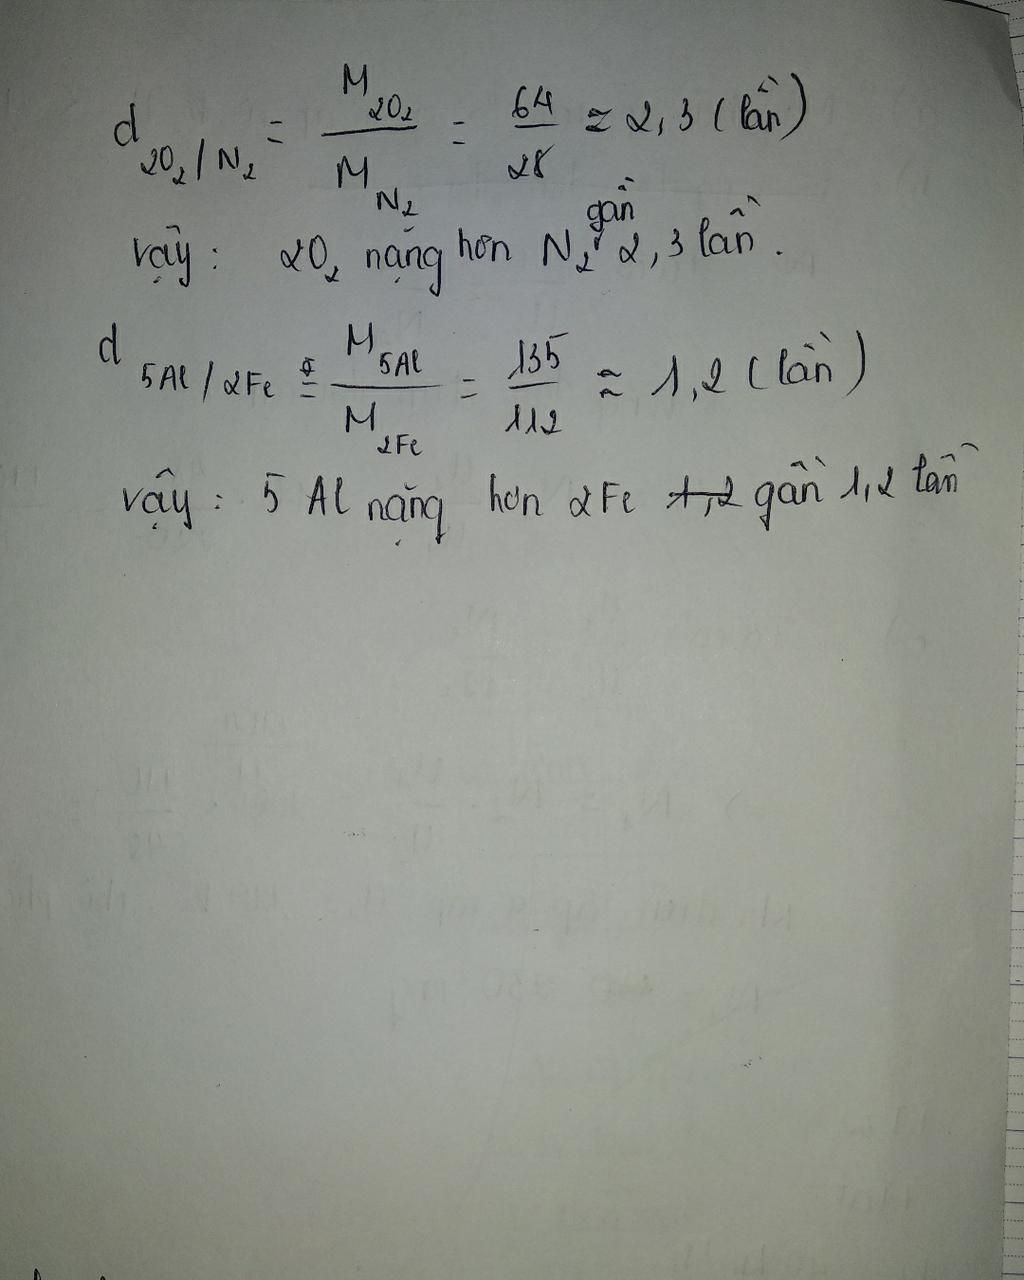 d 2O₂/N₂ = M 2O₂ / M N₂ = 64/28 ≈ 2,3 (lần)
vậy : 2O₂ nặng hơn N₂ gần 2,3 lần .
d 5Al/2Fe = M 5Al / M 2Fe = 135/112 ≈ 1,2 (lần)
vậy : 5 Al nặng hơn 2Fe 1,2 gần 1,2 lần